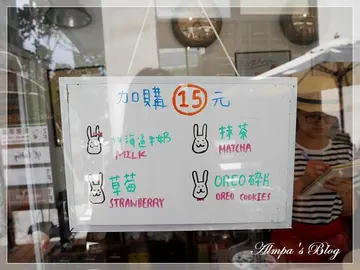 加購 15 元
北海道牛奶
MILK
抹茶
MATCHA
草莓
STRAWBERRY
OREO碎片
OREO COOKIES
Almpa's Blog